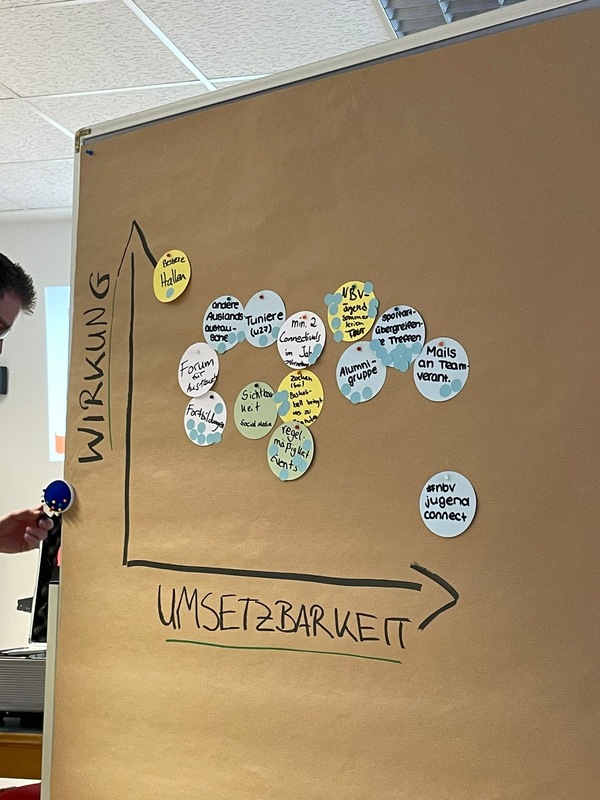 WIRKUNG
Bessere
Hallen
andere
Auslands
austau-
sche
Tuniere
(U27)
min. 2
Connectivals
im Jahr
NBV-
Jugend
Sommer
ferien
Tour
sportart-
übergreifen-
e Treffen
Mails
an Team-
verant.
Alumni-
gruppe
Forum
für
Austausch
Fortbildungen
Sichtbar
keit
Social Media
Zocken
Basket-
ball bringt
uns zu
regel-
mäßigkeit
Events
#nbv
jugend
connect
UMSETZBARKEIT